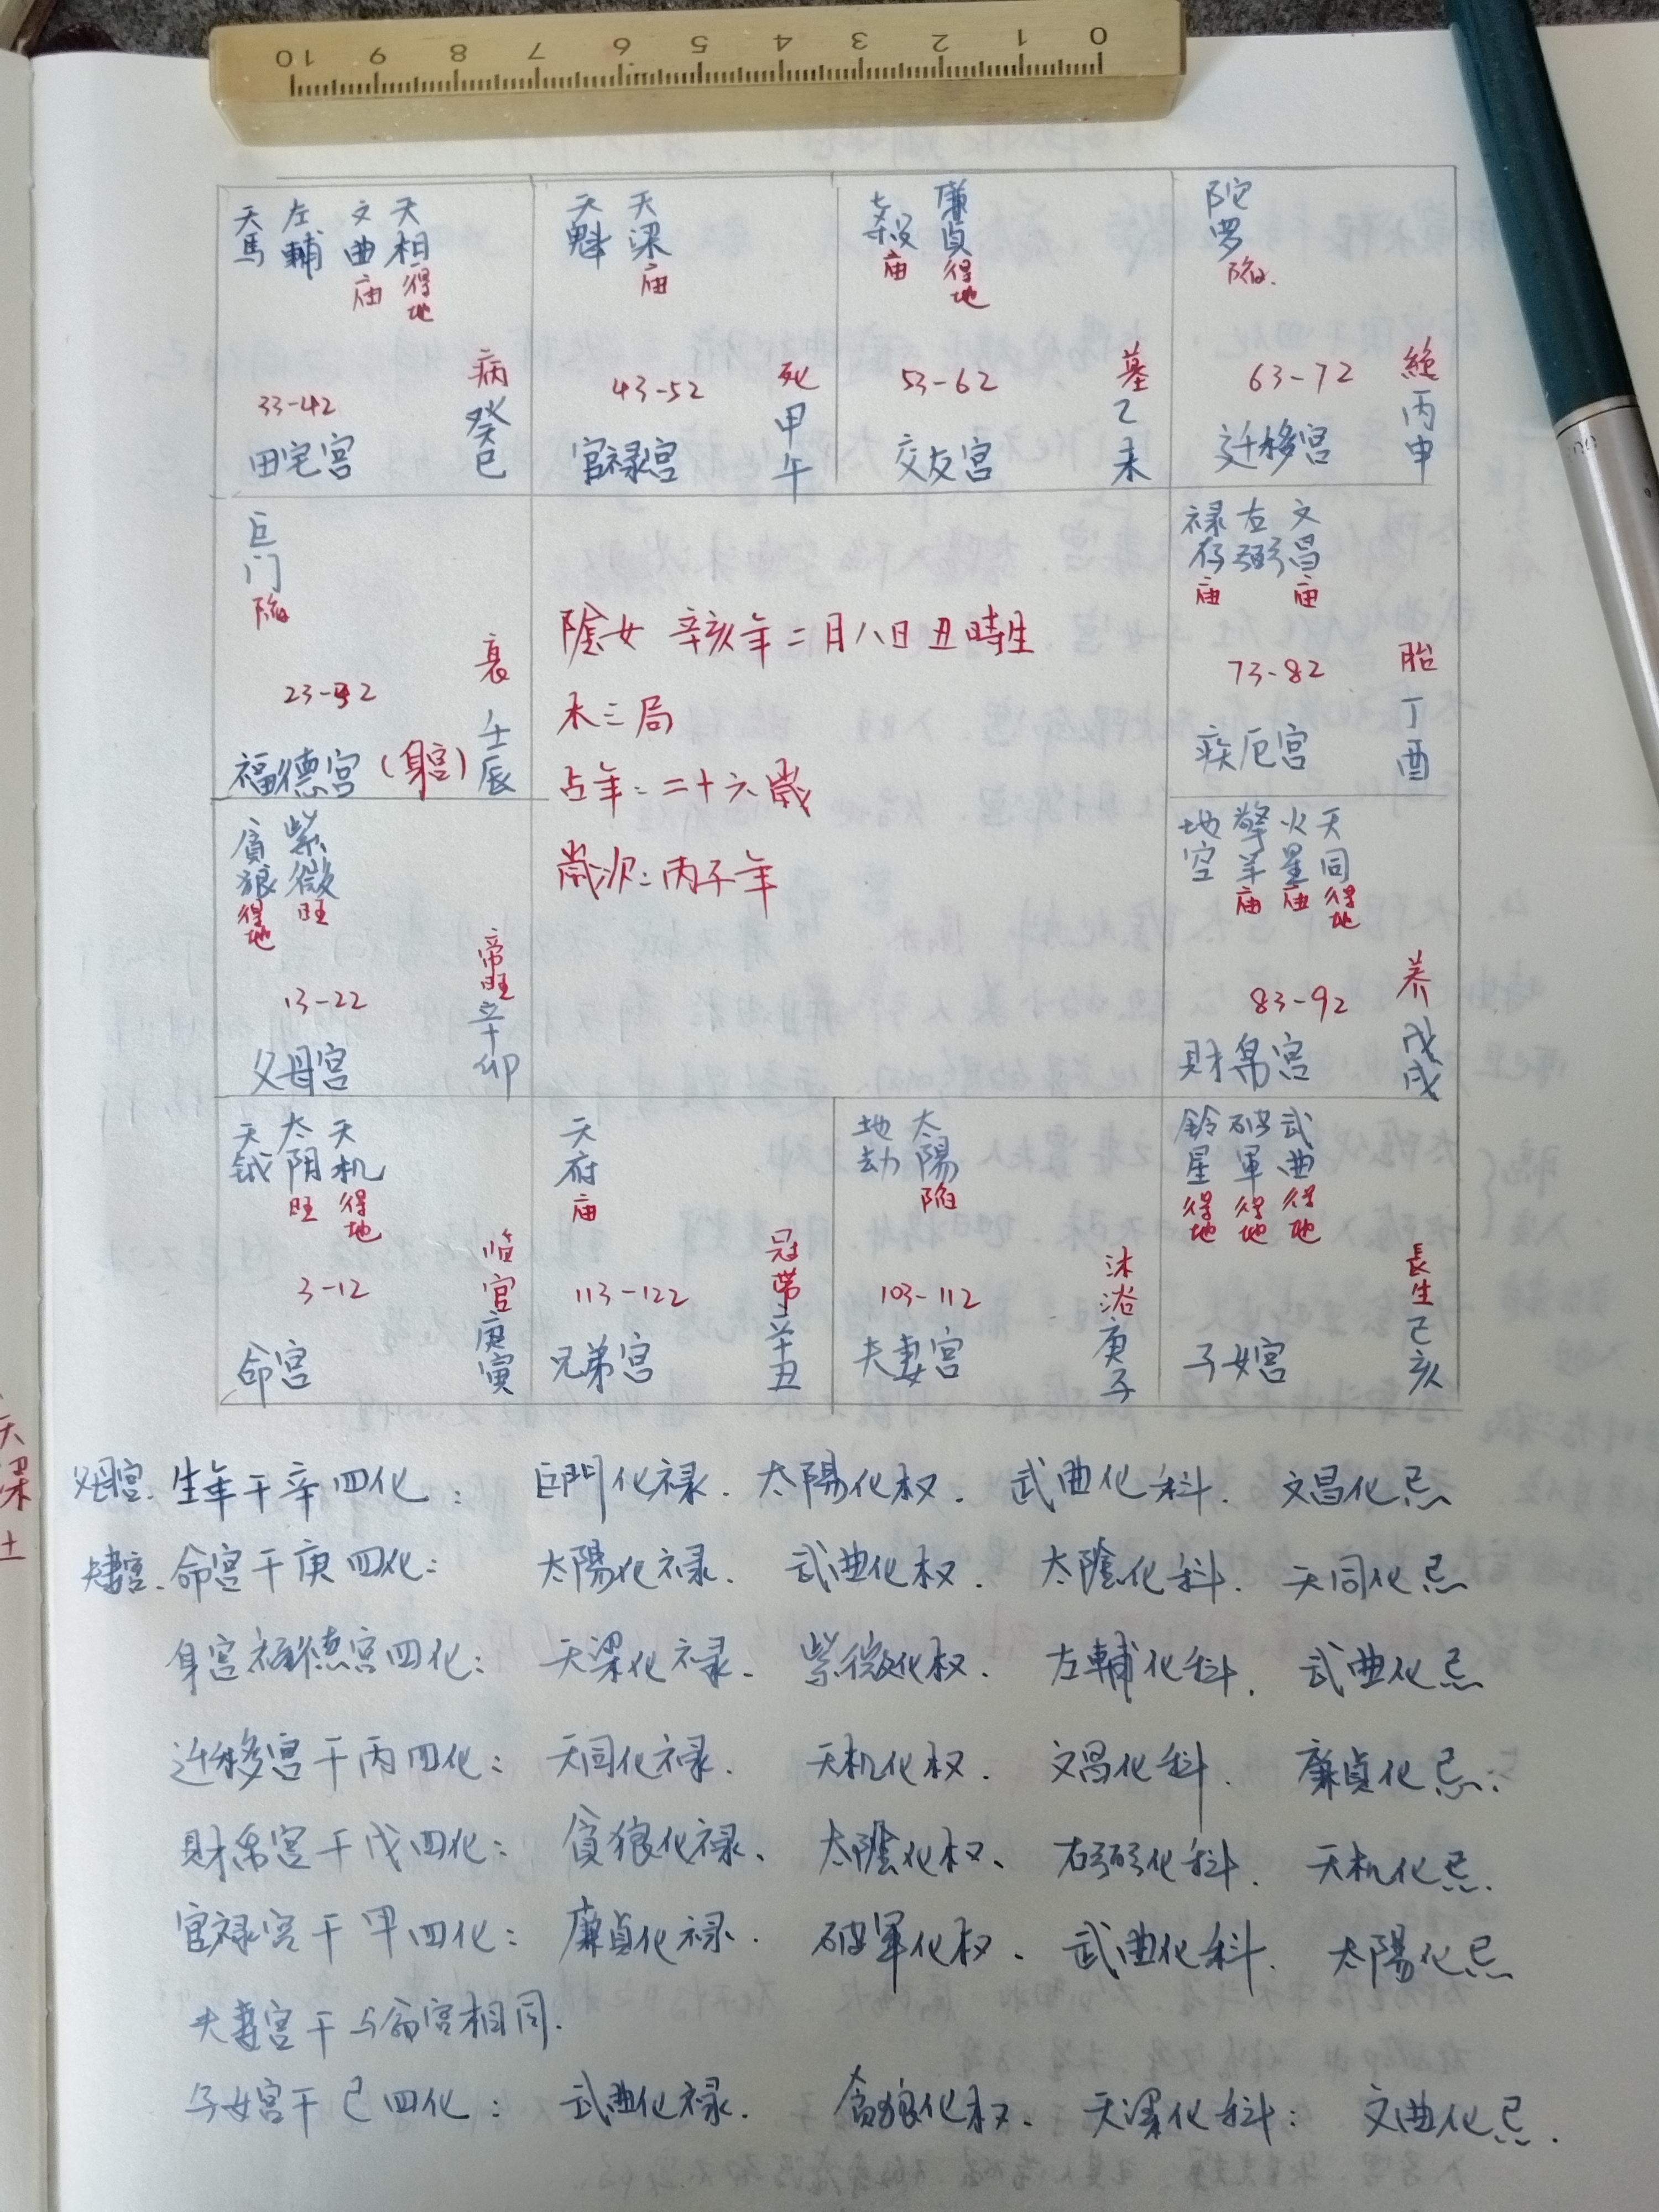 10 9 8 7 6 5 4 3 2 1 0
天馬 左輔 文曲 庙 天相 得地
33-42 病
田宅宫 癸巳
天魁 天梁 庙
43-52 死
官禄宫 甲午
七殺 庙 廉貞 得地
53-62 墓
交友宫 乙未
陀罗 陷.
63-72 絶
迁移宫 丙申
巨门 陷
23-32 衰
福德宫 (身宫) 壬辰
陰女 辛亥年二月八日丑時生
木三局
占年:二十六歲
歲次:丙子年
禄存 庙 右弼 文昌 庙
73-82 胎
疾厄宫 丁酉
貪狼 得地 紫微 旺
13-22 帝旺
父母宫 辛卯
地空 擎羊 庙 火星 庙 天同 得地
83-92 养
財帛宫 戊戌
天钺 太阴 旺 天机 得地
3-12 临官
命宫 庚寅
天府 庙
113-122 冠带
兄弟宫 辛丑
地劫 太陽 陷
103-112 沐浴
夫妻宫 庚子
鈴星 得地 破軍 得地 武曲 得地
長生
子女宫 己亥
父母宫. 生年干辛四化: 巨門化禄. 太陽化权. 武曲化科. 文昌化忌
夫妻宫. 命宫干庚四化: 太陽化禄. 武曲化权. 太陰化科. 天同化忌
身宫福德宫四化: 天梁化禄. 紫微化权. 左輔化科. 武曲化忌
迁移宫干丙四化: 天同化禄. 天机化权. 文昌化科. 廉貞化忌.
財帛宫干戊四化: 貪狼化禄、 太陰化权、 右弼化科. 天机化忌.
官禄宫干甲四化: 廉貞化禄. 破軍化权、 武曲化科. 太陽化忌
夫妻宫干与命宫相同.
子女宫干己四化: 武曲化禄. 貪狼化权、 天梁化科: 文曲化忌.
天梁土